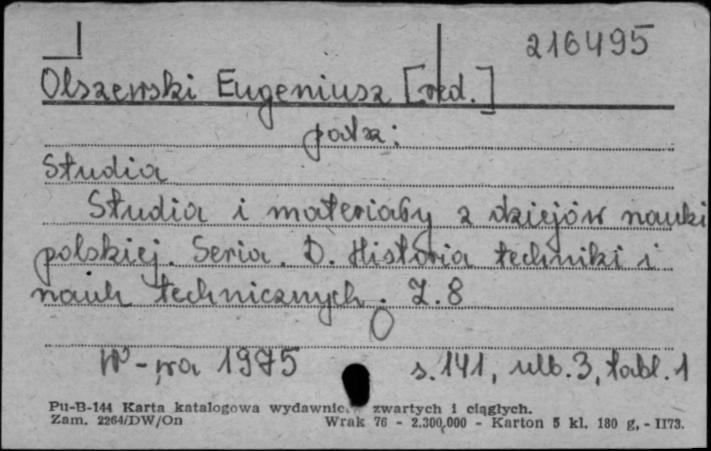 216495
Olszewski Eugeniusz [red.]
patrz:
Studia
Studia i materiały z dziejów nauki
polskiej. Seria. D. Historia techniki i
nauk technicznych. Z.8
W-wa 1975 s. 141, nlb. 3, tabl. 1
Pu-B-144 Karta katalogowa wydawnic. zwartych i ciągłych.
Zam. 2264/DW/On Wrak 76 - 2.300,000 - Karton 5 kl. 180 g, - II73.